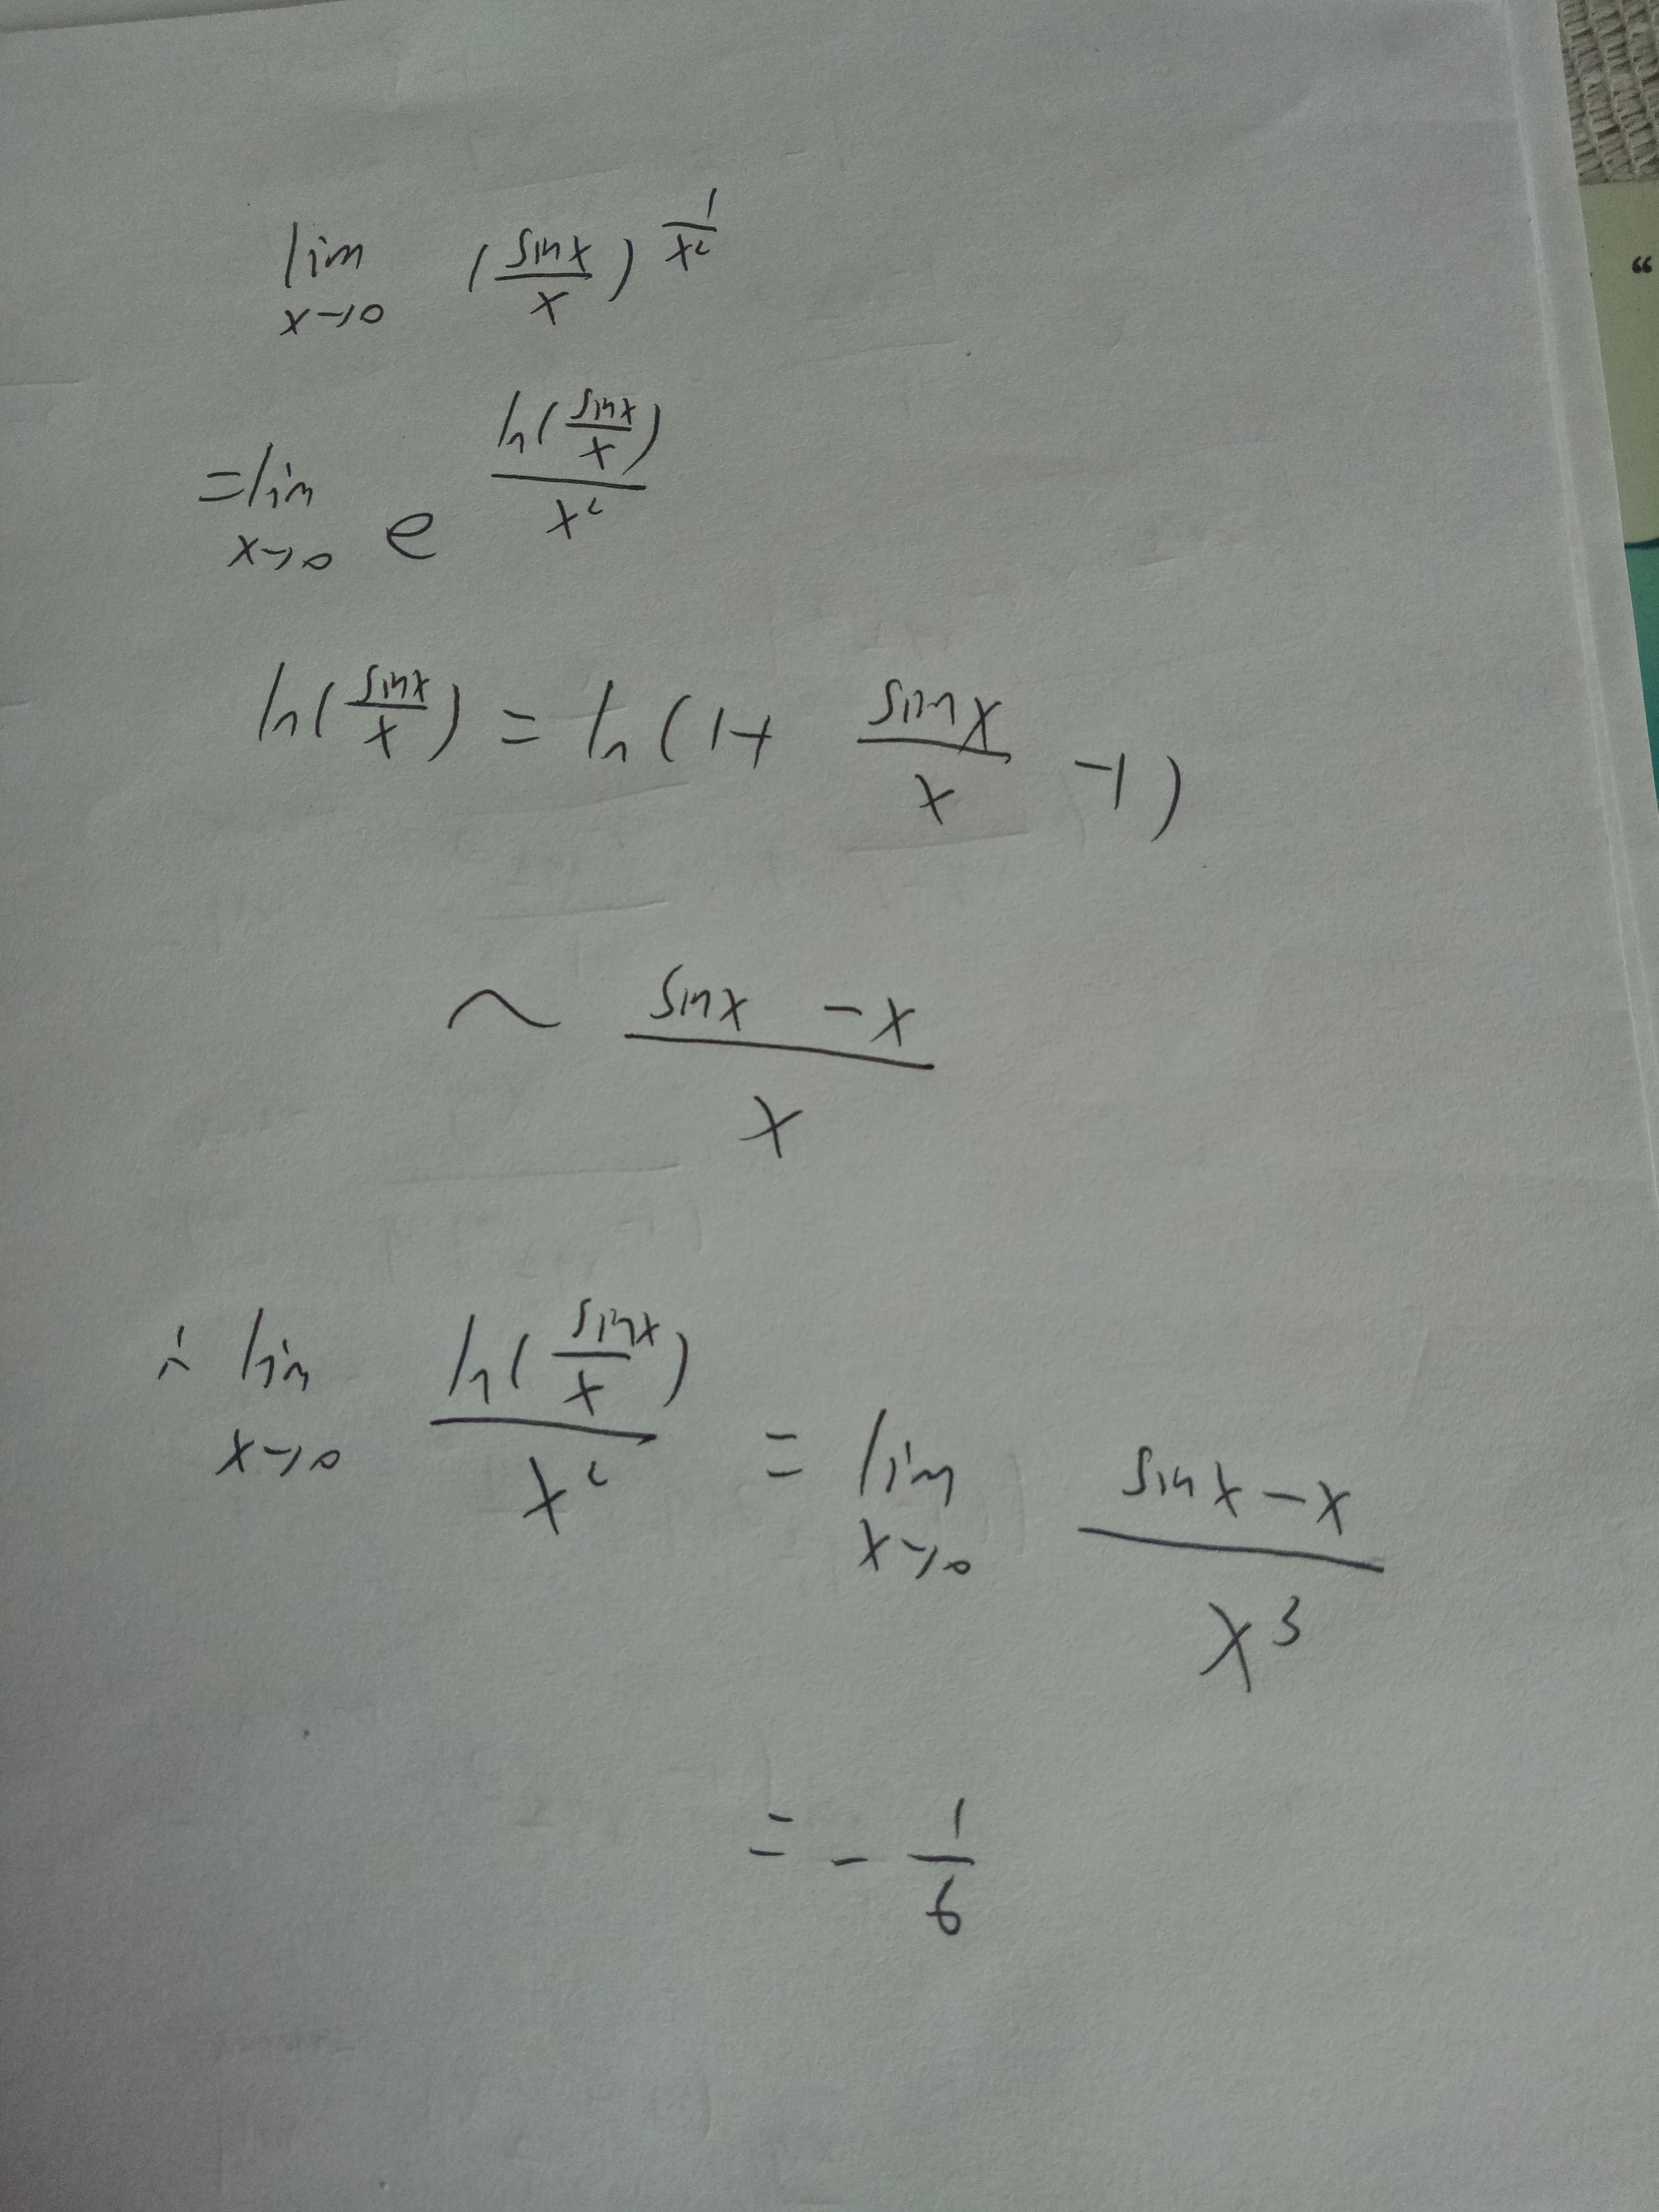 lim x→0 (sinx/x)^(1/x²)
=lim x→0 e^(ln(sinx/x)/x²)
ln(sinx/x) = ln(1+ sinx/x -1)
~ (sinx -x)/x
∴ lim x→0 ln(sinx/x)/x² = lim x→0 (sinx-x)/x³
= -1/6
“